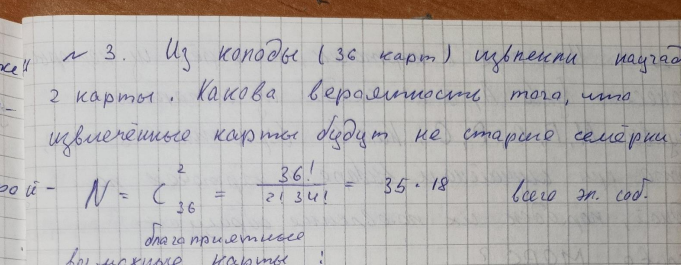 же"
~ 3. Из колоды (36 карт) извлекли наугад
2 карты. Какова вероятность того, что
извлечённые карты будут не старше семёрки
рой- N = C²₃₆ = 36!/2!34! = 35 · 18 всего эл. соб.
благоприятные
возможные карты :